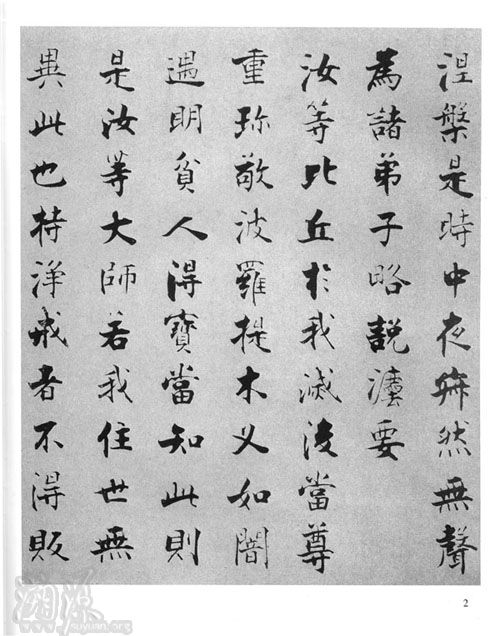 涅槃是時中夜寂然無聲
為諸弟子略說灋要
汝等比丘於我滅後當尊
重珍敬波羅提木叉如闇
遇明貧人得寶當知此則
是汝等大師若我住世無
異此也持淨戒者不得販
2
溯源
suyuan.org